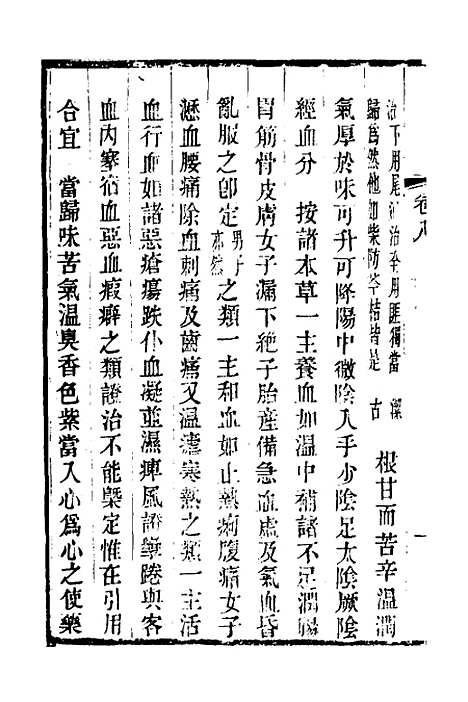 卷八
治下用尾 治全用 獨當 潔
歸爲然他如柴防芩桔皆是 古
根甘而苦辛温潤
氣厚於味可升可降陽中微陰入手少陰足太陰厥陰
經血分　按諸本草一主養血如温中補諸不足潤腸
胃筋骨皮膚女子漏下絶子胎産備急血虚及氣血昏
亂服之卽定男子亦然之類一主和血如止熱痢腹痛女子
瀝血腰痛除血刺痛及齒痛又温瘧寒熱之類一主活
血行血如諸惡瘡瘍跌仆血凝並濕痺風證踡與客
血内塞宿血惡血癥癖之類證治不能槩定惟在引用
合宜　當歸味苦氣温臭香色紫當入心爲心之使藥